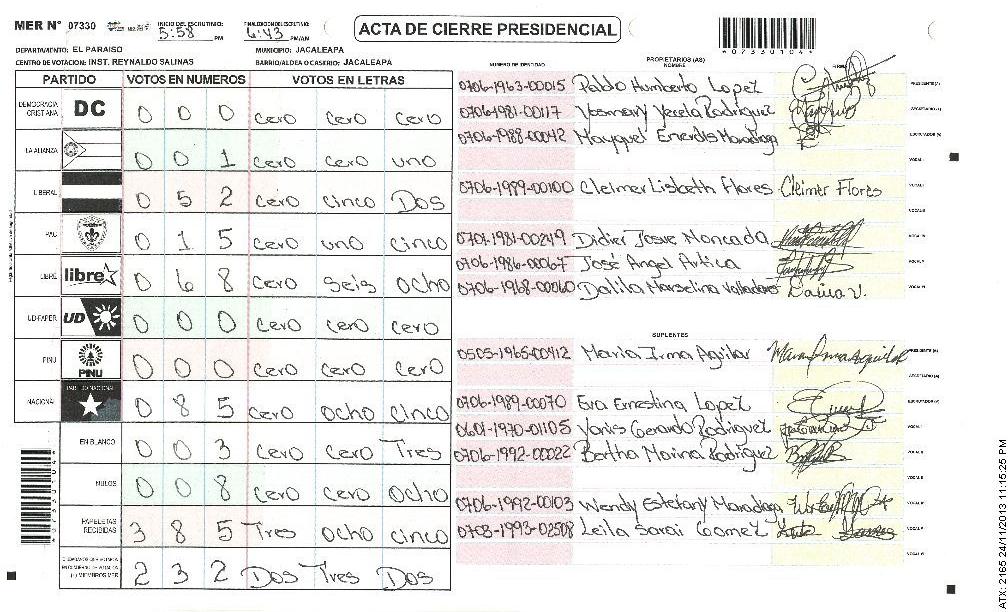 MER N° 07330
INICIO DEL ESCRUTINIO: 5:58 PM
FINALIZACION DEL ESCRUTINIO: 6:43 PM/AM
ACTA DE CIERRE PRESIDENCIAL
*0733010 4*
DEPARTAMENTO: EL PARAISO MUNICIPIO: JACALEAPA
CENTRO DE VOTACION: INST. REYNALDO SALINAS BARRIO/ALDEA O CASERIO: JACALEAPA
PARTIDO VOTOS EN NUMEROS VOTOS EN LETRAS
DEMOCRACIA CRISTIANA DC 0 0 0 cero cero cero
LA ALIANZA 0 0 1 cero cero uno
LIBERAL 0 5 2 cero cinco Dos
PAC 0 1 5 cero uno cinco
LIBRE libre 0 6 8 cero seis ocho
UD-FAPER UD 0 0 0 cero cero cero
PINU PINU 0 0 0 cero cero cero
NACIONAL PARTIDO NACIONAL 0 8 5 cero ocho cinco
EN BLANCO 0 0 3 cero cero Tres
NULOS 0 0 8 cero cero ocho
PAPELETAS RECIBIDAS 3 8 5 Tres ocho cinco
(+) MIEMBROS MER 2 3 2 Dos Tres Dos
NUMERO DE IDENTIDAD PROPIETARIOS (AS) NOMBRE FIRMA
0706-1963-00015 Pablo Humberto Lopez PRESIDENTE (A)
0706-1981-00117 Yosmary Yecela Rodriguez SECRETARIO (A)
0706-1988-00042 Mayquel Enerdis Maradiaga ESCRUTADOR (A)
VOCAL I
0706-1989-00100 Cleimer Lisbeth Flores Cleimer Flores VOCAL II
VOCAL III
0701-1981-00249 Didier Josue Moncada VOCAL IV
0706-1986-00067 José Angel Artica VOCAL V
0706-1968-00060 Dalila Marselina Valladares Dalila V. VOCAL VI
SUPLENTES
0505-1965-00412 Maria Irma Aguilar Maria Irma Aguilar PRESIDENTE (A)
SECRETARIO (A)
0706-1989-00070 Eva Ernestina Lopez ESCRUTADOR (A)
0601-1970-01105 Yonis Gerardo Rodriguez VOCAL I
0706-1992-00022 Bertha Marina Rodriguez VOCAL II
VOCAL III
0706-1992-00103 Wendy Estefany Maradiaga VOCAL IV
0703-1993-02508 Leila Sarai Gomez VOCAL V
VOCAL VI
ATX: 2165 24/11/2013 11:15:25 PM